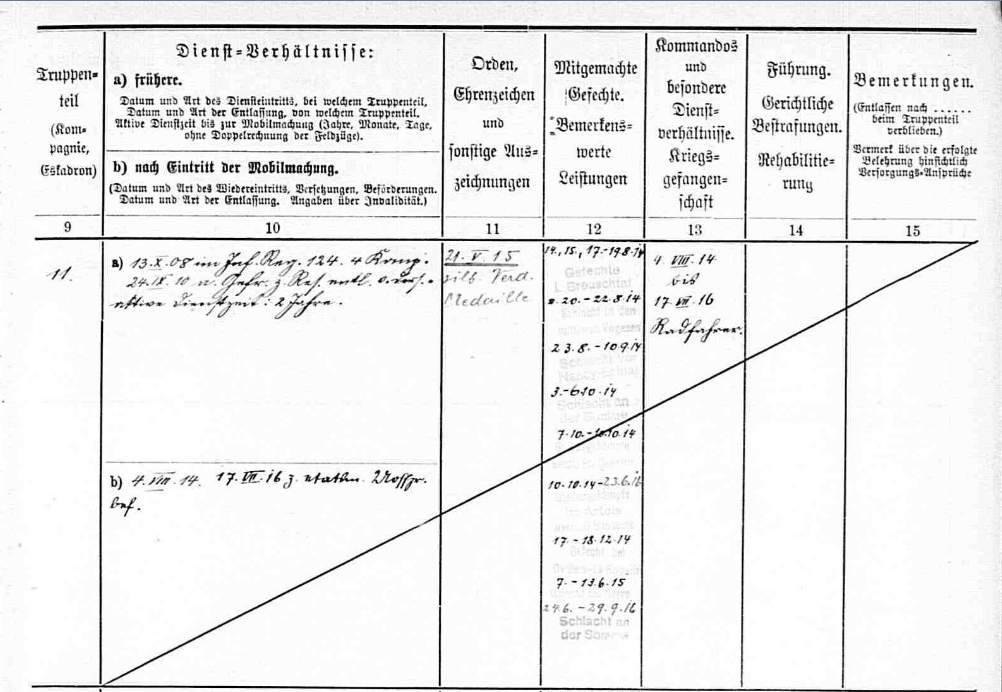 Truppen=
teil
(Kom=
pagnie,
Eskadron)
9
11.
Dienst=Verhältnisse:
a) frühere.
Datum und Art des Diensteintritts, bei welchem Truppenteil,
Datum und Art der Entlassung, von welchem Truppenteil.
Aktive Dienstzeit bis zur Mobilmachung (Jahre, Monate, Tage,
ohne Doppelrechnung der Feldzüge).
b) nach Eintritt der Mobilmachung.
(Datum und Art des Wiedereintritts, Versetzungen, Beförderungen.
Datum und Art der Entlassung. Angaben über Invalidität.)
10
a) 13.X.08 im Inf. Reg. 124. 4 Komp.
24.IX.10 a. Gefr. z. Res. entl.
aktive Dienstzeit: 2 Jahre.
b) 4.VIII.14. 17.VII.16 z.
bef.
Orden,
Ehrenzeichen
und
sonstige Aus=
zeichnungen
11
21.V.15
silb. Verd.
Medaille
Mitgemachte
Gefechte.
Bemerkens=
werte
Leistungen
12
14., 15., 17.-19.8.14
Gefechte
i. Breuschtal
20.-22.8.14
Schlacht in den
Vogesen
23.8.-10.9.14
Schlacht vor
Nancy-Epinal
3.-6.10.14
Schlacht an
der Somme
7.10.-10.10.14
10.10.14-23.6.16
im Artois
17.-18.12.14
Gefecht bei
7.-13.6.15
24.6.-29.9.16
Schlacht an
der Somme
Kommandos
und
besondere
Dienst=
verhältnisse.
Kriegs=
gefangen=
schaft
13
4.VIII.14
bis
17.VII.16
Radfahrer.
Führung.
Gerichtliche
Bestrafungen.
Rehabilitie=
rung
14
Bemerkungen.
(Entlassen nach ......
beim Truppenteil
verblieben.)
Vermerk über die erfolgte
Belehrung hinsichtlich
Versorgungs-Ansprüche
15